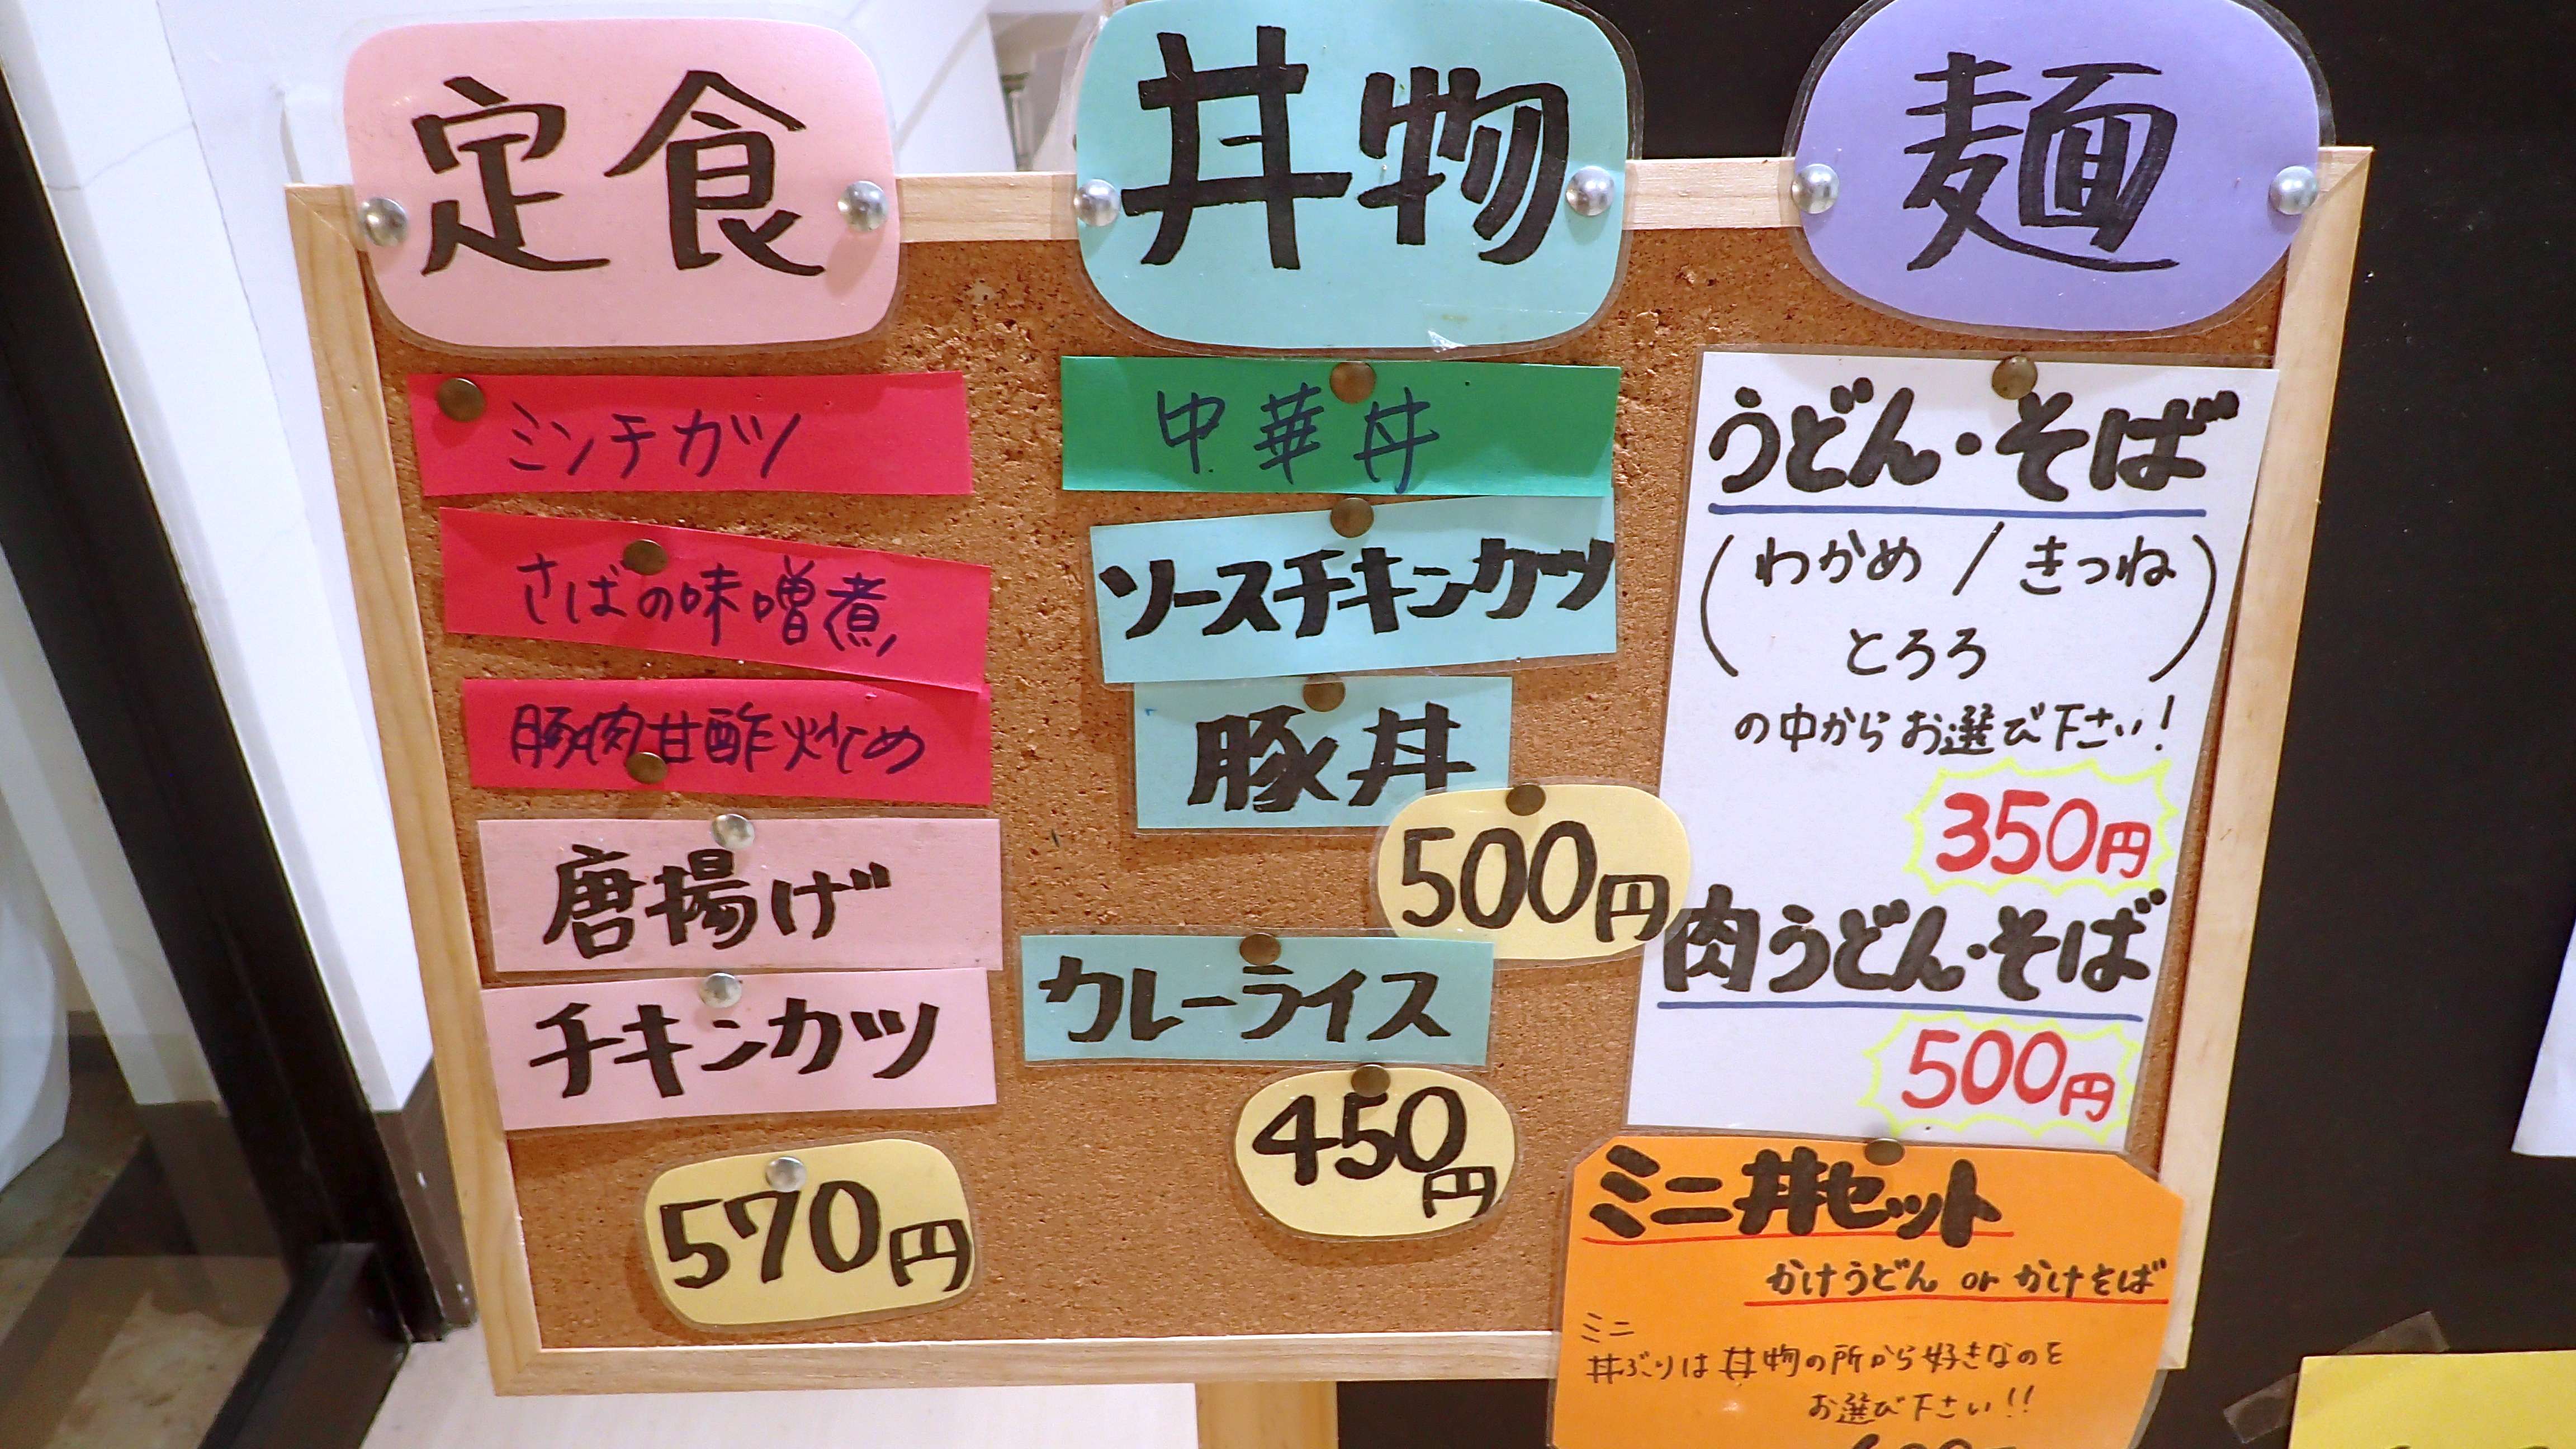 定食
ミンチカツ
さばの味噌煮
豚肉甘酢炒め
唐揚げ
チキンカツ
570円
丼物
中華丼
ソースチキンカツ
豚丼
500円
カレーライス
450円
麺
うどん・そば
(わかめ / きつね
とろろ)
の中からお選び下さい!
350円
肉うどん・そば
500円
ミニ丼セット
かけうどん or かけそば
ミニ
丼ぶりは丼物の所から好きなのを
お選び下さい!!